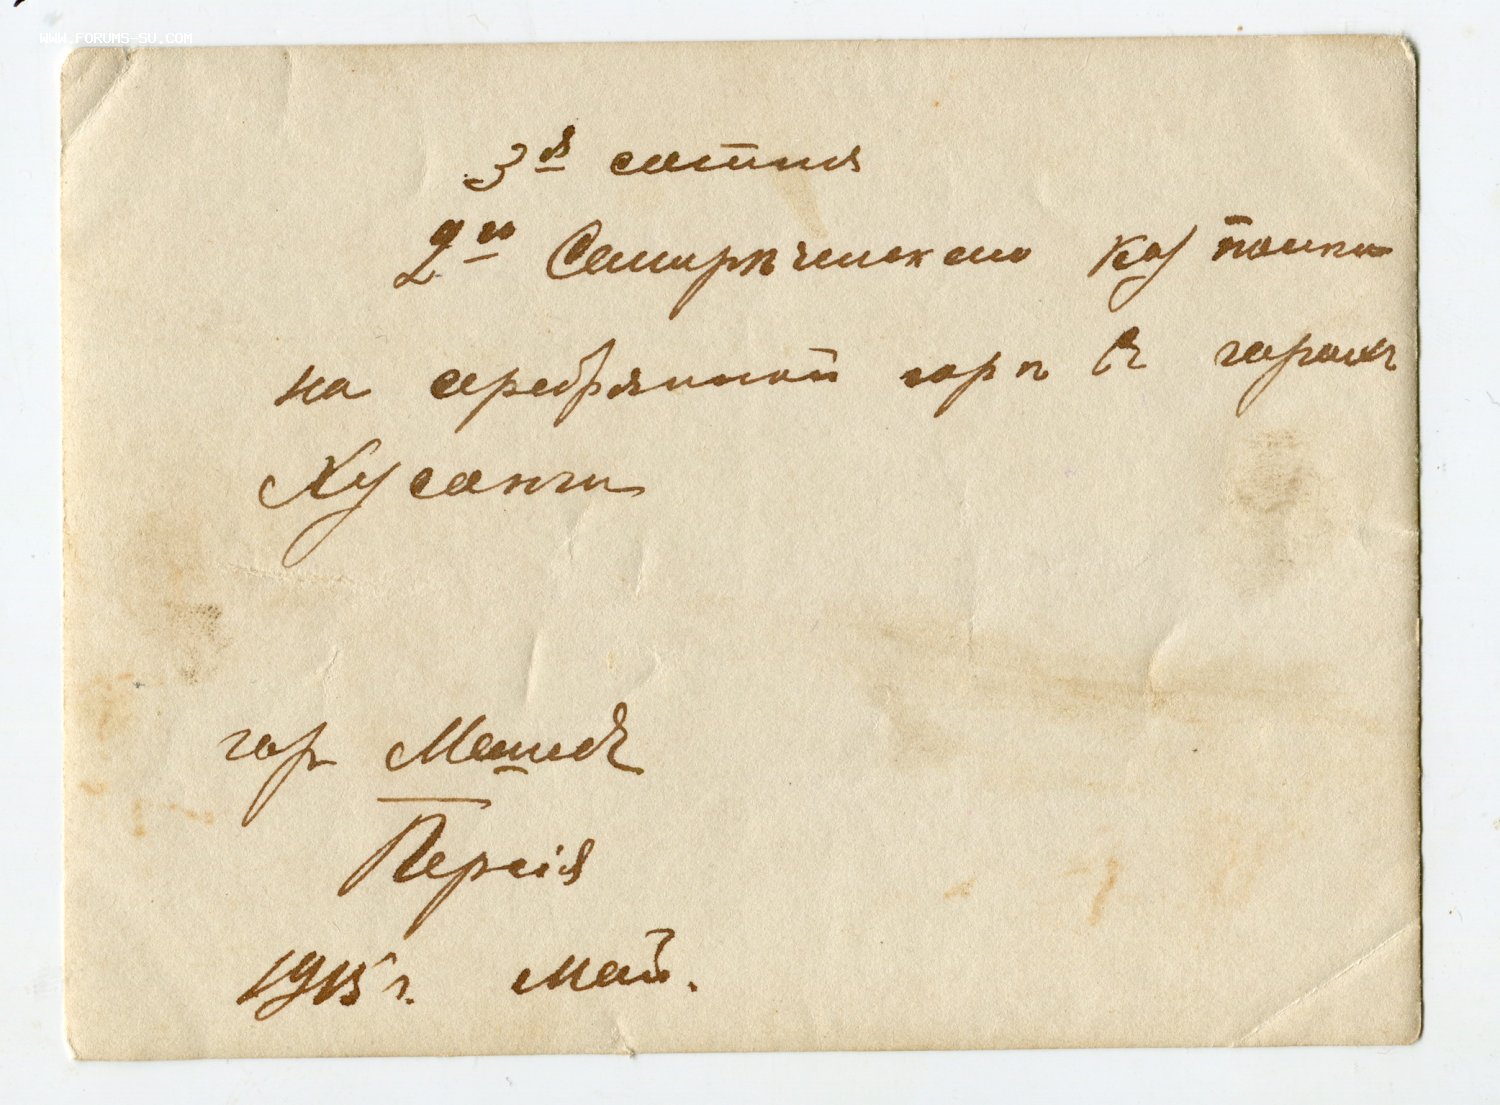 WWW.FORUMS-SU.COM
3я сотня
2го Семирѣченскаго каз полка
на серебряной горѣ въ горахъ
Хусанги
гор Мешедъ
Персія
1915 г. Май.